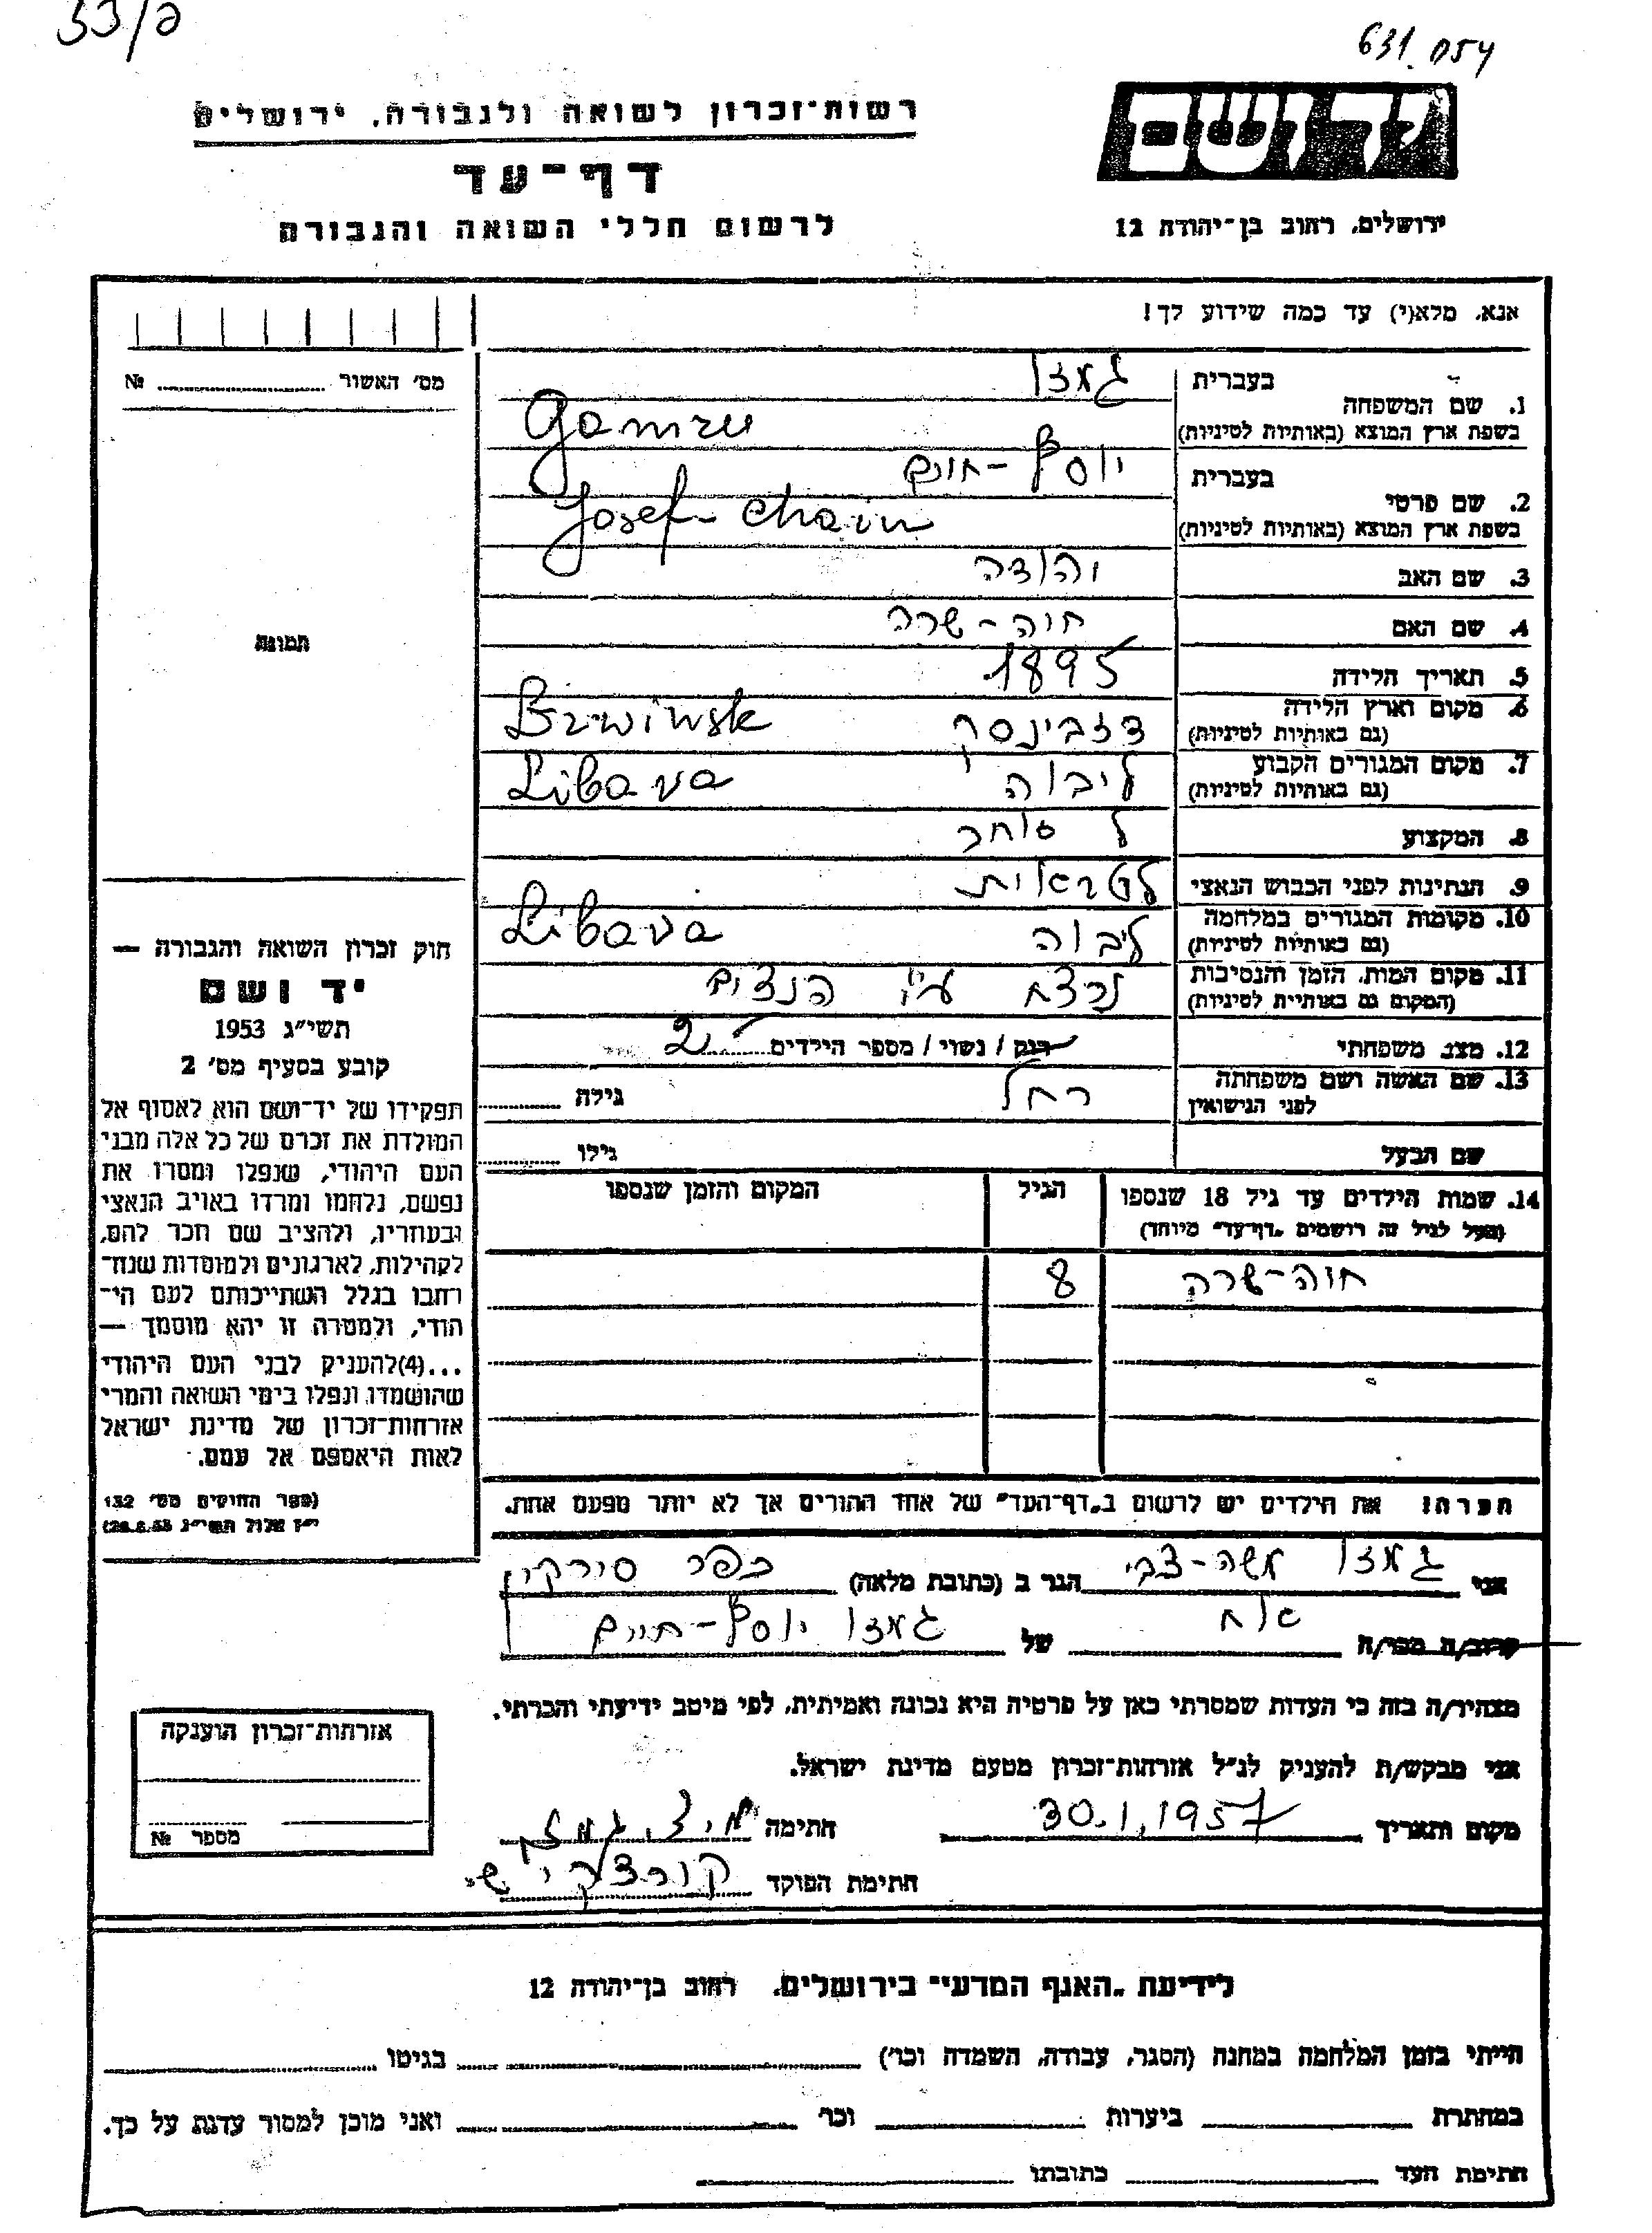 33/ג
631.054
רשות־זכרון לשואה ולגבורה, ירושלים
דף־עד
לרשום חללי השואה והגבורה
יד ושם
ירושלים, רחוב בן־יהודה 12
אנא, מלא(י) עד כמה שידוע לך!
מס׳ האשור № 
תמונה
1. שם המשפחה
בעברית גמזו
בשפת ארץ המוצא (באותיות לטיניות) Gamzu
2. שם פרטי
בעברית יוסף-חיים
בשפת ארץ המוצא (באותיות לטיניות) Josef Chaim
3. שם האב יהודה
4. שם האם חוה-שרה
5. תאריך הלידה 1895
6. מקום וארץ הלידה
(גם באותיות לטיניות) דזבינסק
7. מקום המגורים הקבוע
(גם באותיות לטיניות) ליבוה Libava
8. המקצוע סוחר
9. הנתינות לפני הכבוש הנאצי לטבאות
10. מקומות המגורים במלחמה
(גם באותיות לטיניות) ליבוה Libava
11. מקום המות, הזמן והנסיבות
(המקום גם באותיות לטיניות) נרצח ע״י הנצים
12. מצב משפחתי רוק / נשוי / מספר הילדים 2
13. שם האשה ושם משפחתה
לפני הנישואין רחל גילה
שם הבעל גילו
14. שמות הילדים עד גיל 18 שנספו הגיל המקום והזמן שנספו
(מעל לגיל זה רושמים „דף־עד״ מיוחד)
חוה-שרה 8
הערה! את הילדים יש לרשום ב„דף־העד״ של אחד ההורים אך לא יותר מפעם אחת.
חוק זכרון השואה והגבורה —
יד ושם
תשי״ג 1953
קובע בסעיף מס׳ 2
תפקידו של יד־ושם הוא לאסוף אל
המולדת את זכרם של כל אלה מבני
העם היהודי, שנפלו ומסרו את
נפשם, נלחמו ומרדו באויב הנאצי
ובעוזריו, ולהציב שם וזכר להם,
לקהילות, לארגונים ולמוסדות שנח־
רחבו בגלל השתייכותם לעם הי־
הודי, ולמטרה זו יהא מוסמך —
...(4)להעניק לבני העם היהודי
שהושמדו ונפלו בימי השואה והמרי
אזרחות־זכרון של מדינת ישראל
לאות היאספם אל עמם.
(ספר החוקים מס׳ 132
י״ז אלול תשי״ג 28.8.53)
אני גמזו משה-צבי הגר ב (כתובת מלאה) כפר סירקין
קרוב/ה מכר/ה אח של גמזו יוסף-חיים
מצהיר/ה בזה כי העדות שמסרתי כאן על פרטיה היא נכונה ואמיתית, לפי מיטב ידיעתי והכרתי.
אני מבקש/ת להעניק לנ״ל אזרחות־זכרון מטעם מדינת ישראל.
מקום ותאריך 30.1.1957 חתימה מ.צ. גמזו
חתימת הפוקד קורצקי ש.
אזרחות־זכרון הוענקה
מספר №
לידיעת „האגף המדעי״ בירושלים, רחוב בן־יהודה 12
הייתי בזמן המלחמה במחנה (הסגר, עבודה, השמדה וכו׳) בגיטו
במחתרת ביערות וכו׳ ואני מוכן למסור עדות על כך.
חתימת העד כתובתו